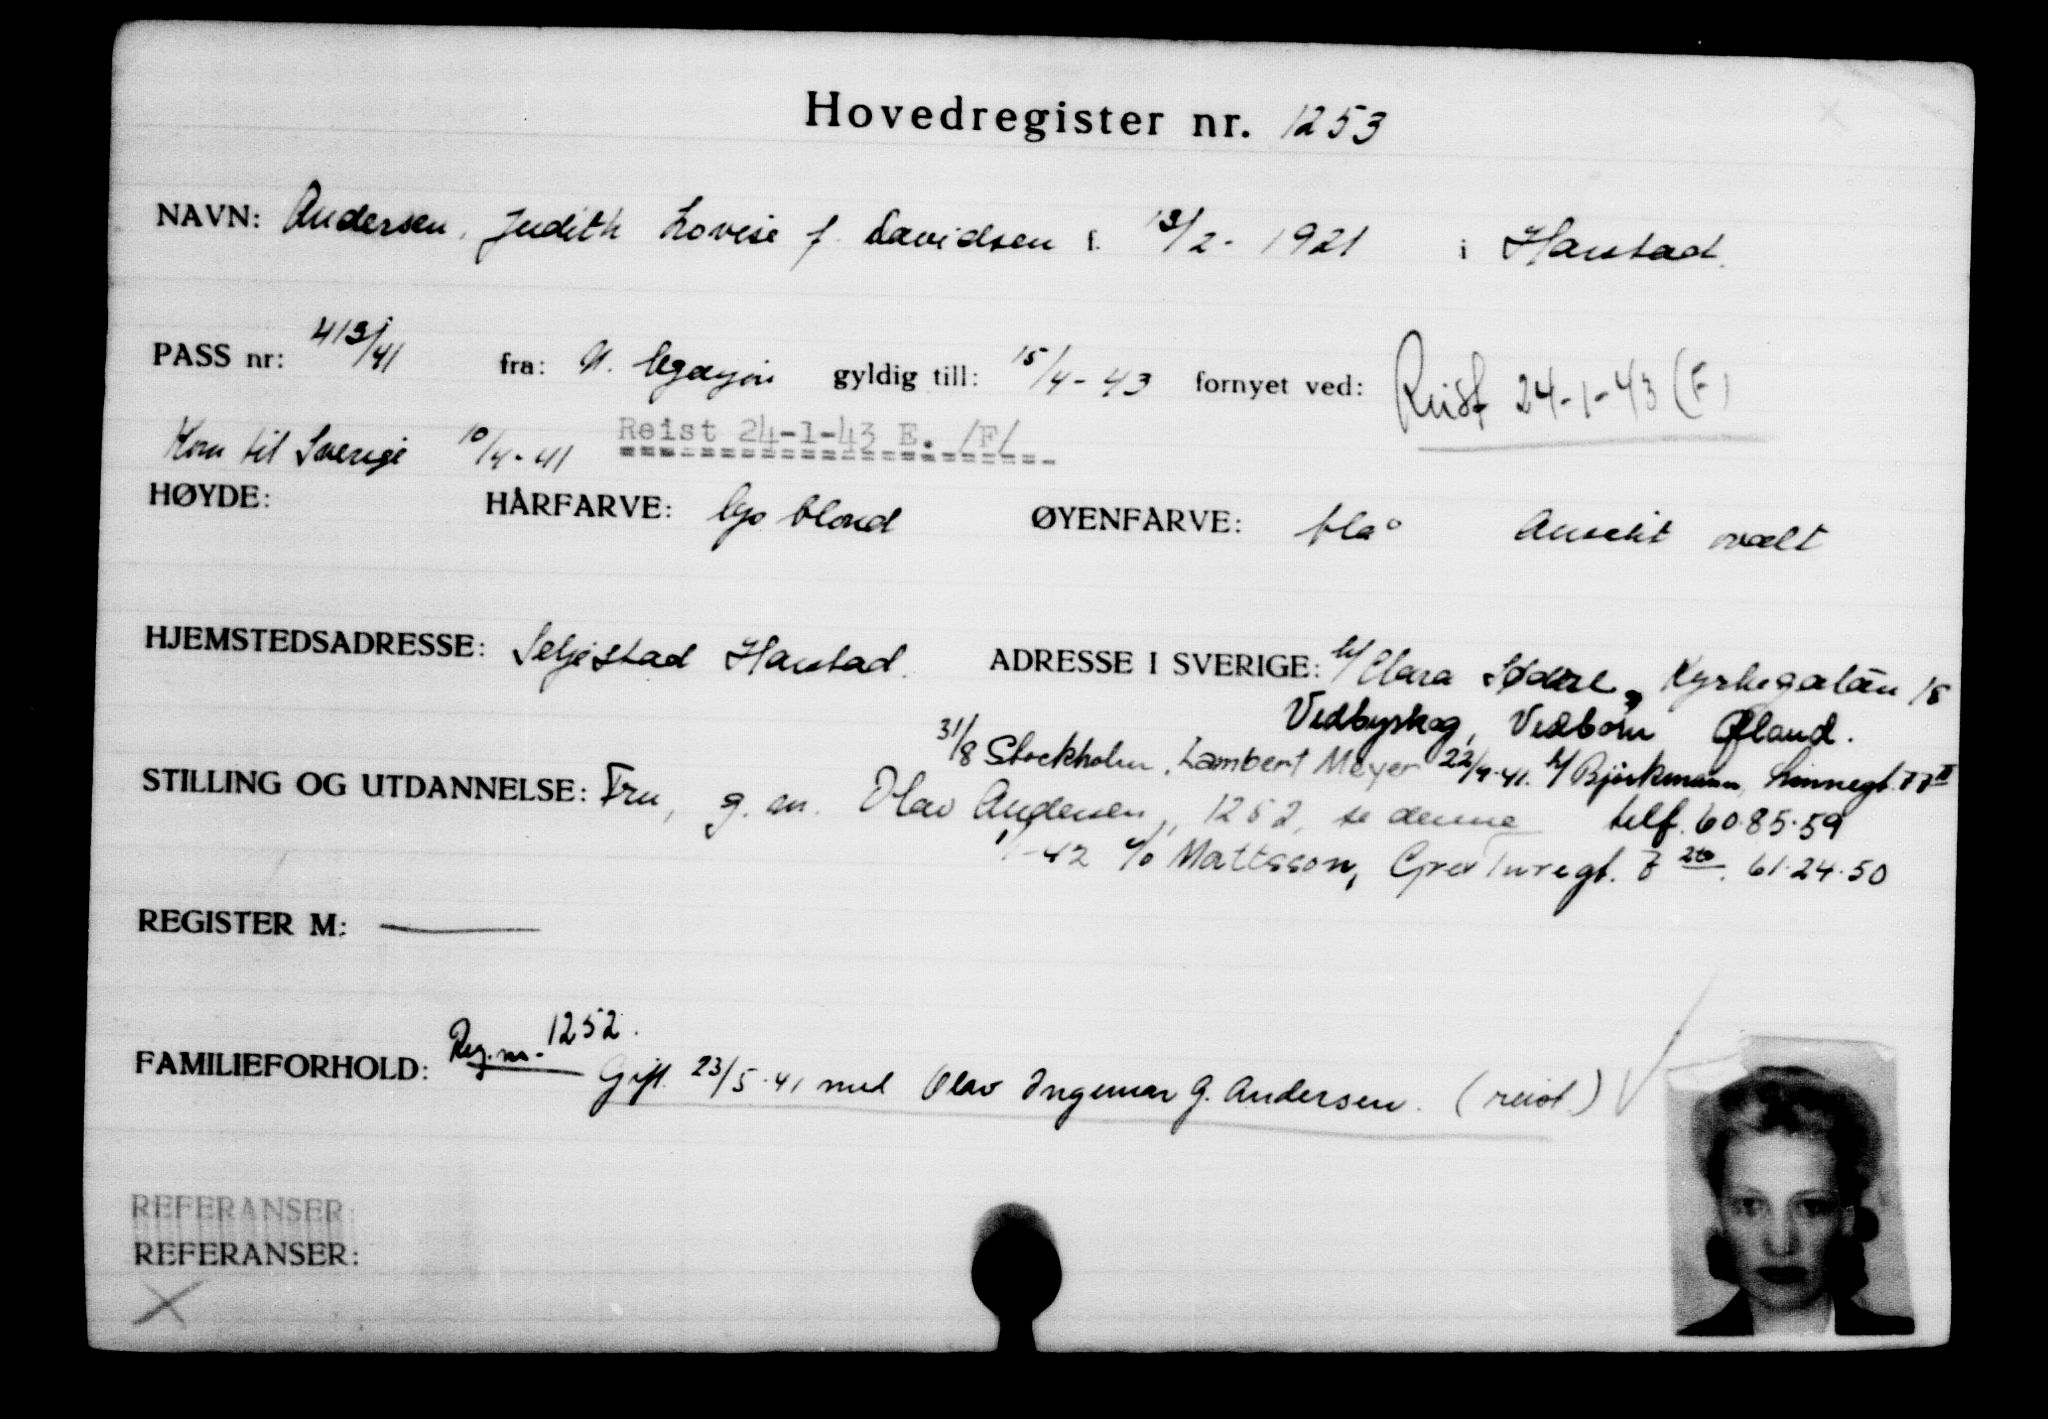 Hovedregister nr. 1253
NAVN: Andersen, Judith Lovise f. Davidsen f. 13/2 - 1921 i Harstad.
PASS nr: 413/41 fra: N. legasjon gyldig till: 15/4 - 43 fornyet ved: Reist 24-1-43 (F)
Kom til Sverige 10/4 - 41 Reist 24-1-43 E. /F/
HØYDE: HÅRFARVE: lys blond ØYENFARVE: blå Ansikt ovalt
HJEMSTEDSADRESSE: Seljestad Harstad. ADRESSE I SVERIGE: h/ Clara Kyrkegatan 18
Vedbyskog, Vedborm Øland.
31/8 Stockholm, Lambert Meyer 22/9-41. h/ Björkmann, Linnegt. 77 II
STILLING OG UTDANNELSE: Fru, g.m. Olav Andersen, 1252, se denne telf. 60.85.59
-42 c/o Mattsson, Grev Turegt. 2tr. 61.24.50
REGISTER M: —
Reg.nr. 1252.
FAMILIEFORHOLD: Gift 23/5-41 med Olav Ingemar G. Andersen. (reist)
REFERANSER:
REFERANSER: